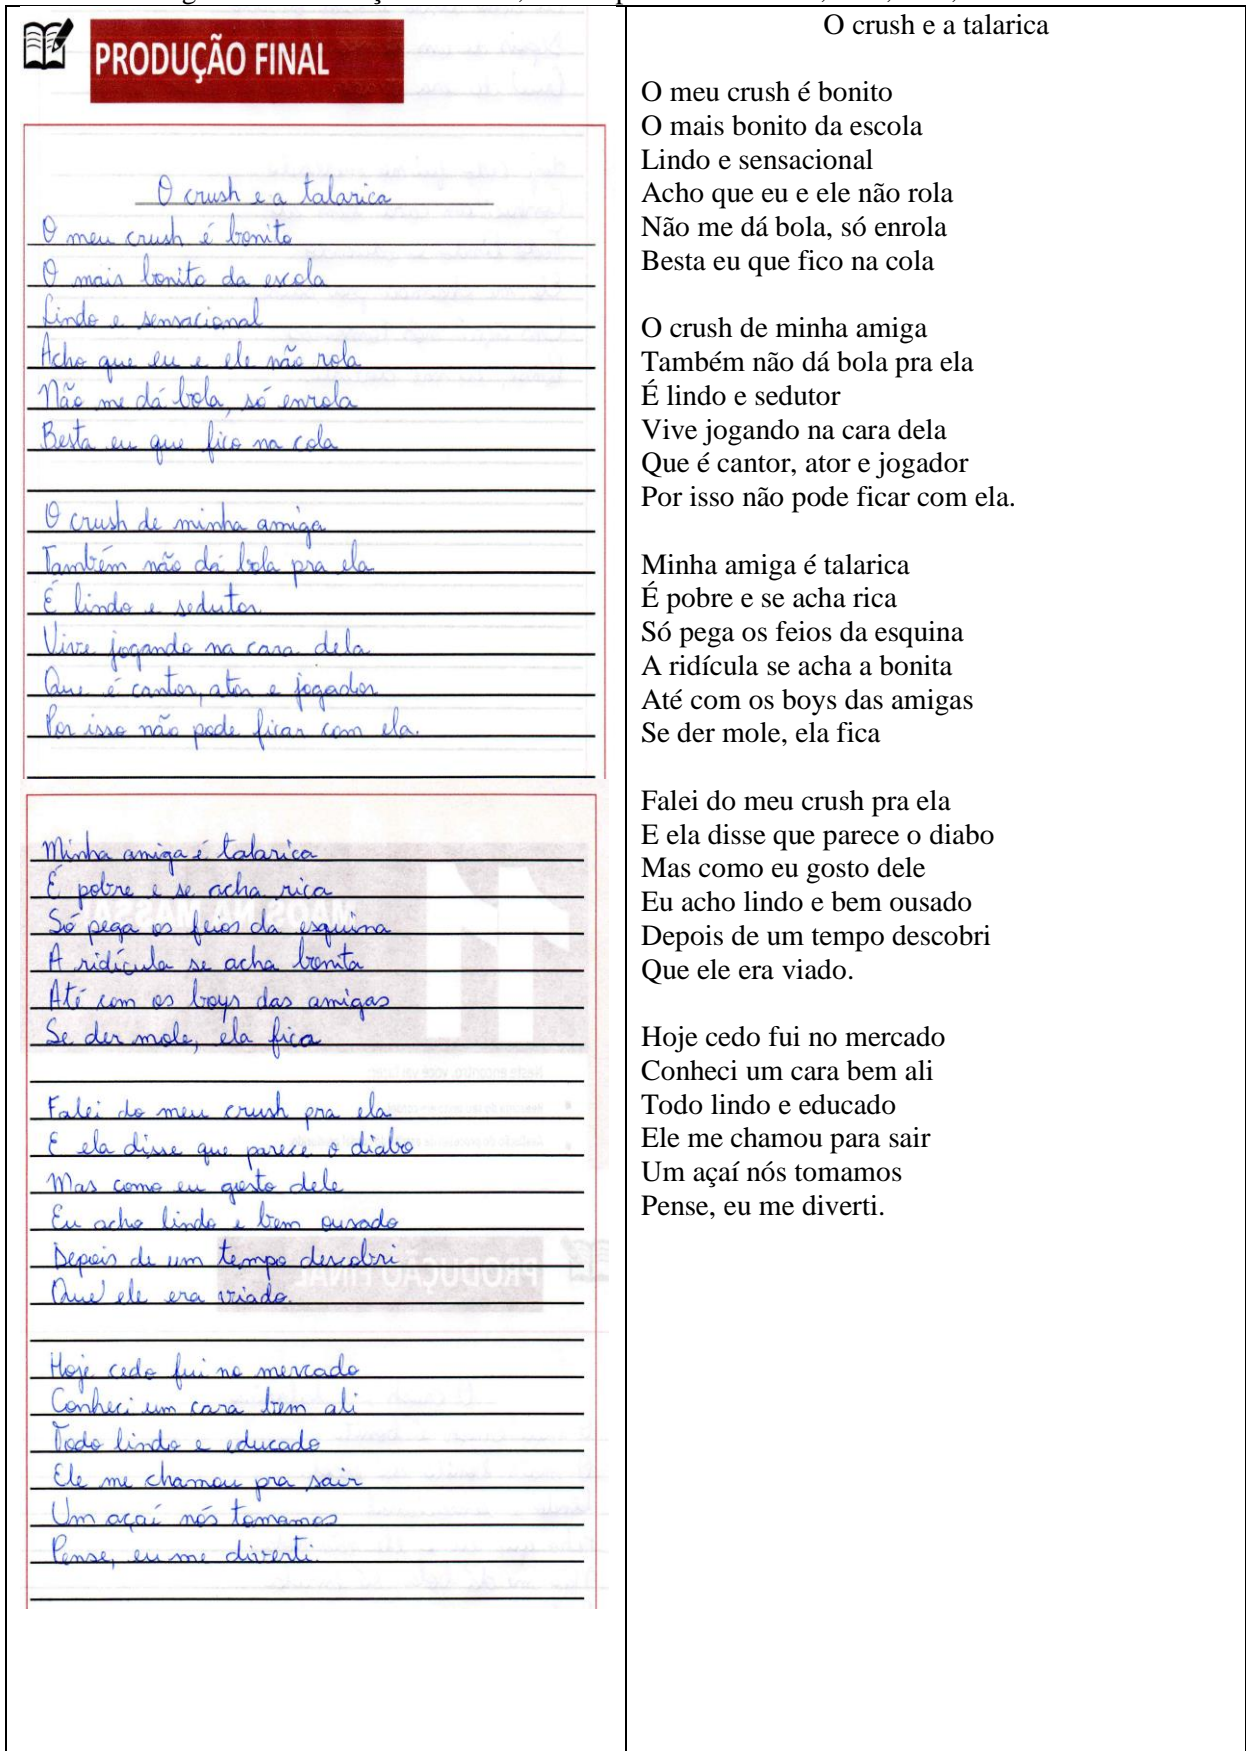 PRODUÇÃO FINAL
O crush e a talarica
O meu crush é bonito
O mais bonito da escola
Lindo e sensacional
Acho que eu e ele não rola
Não me dá bola, só enrola
Besta eu que fico na cola
O crush de minha amiga
Também não dá bola pra ela
É lindo e sedutor
Vive jogando na cara dela
Que é cantor, ator e jogador
Por isso não pode ficar com ela.
Minha amiga é talarica
É pobre e se acha rica
Só pega os feios da esquina
A ridícula se acha bonita
Até com os boys das amigas
Se der mole, ela fica
Falei do meu crush pra ela
E ela disse que parece o diabo
Mas como eu gosto dele
Eu acho lindo e bem ousado
Depois de um tempo descobri
Que ele era viado.
Hoje cedo fui no mercado
Conheci um cara bem ali
Todo lindo e educado
Ele me chamou pra sair
Um açaí nós tomamos
Pense, eu me diverti.
O crush e a talarica
O meu crush é bonito
O mais bonito da escola
Lindo e sensacional
Acho que eu e ele não rola
Não me dá bola, só enrola
Besta eu que fico na cola
O crush de minha amiga
Também não dá bola pra ela
É lindo e sedutor
Vive jogando na cara dela
Que é cantor, ator e jogador
Por isso não pode ficar com ela.
Minha amiga é talarica
É pobre e se acha rica
Só pega os feios da esquina
A ridícula se acha a bonita
Até com os boys das amigas
Se der mole, ela fica
Falei do meu crush pra ela
E ela disse que parece o diabo
Mas como eu gosto dele
Eu acho lindo e bem ousado
Depois de um tempo descobri
Que ele era viado.
Hoje cedo fui no mercado
Conheci um cara bem ali
Todo lindo e educado
Ele me chamou para sair
Um açaí nós tomamos
Pense, eu me diverti.